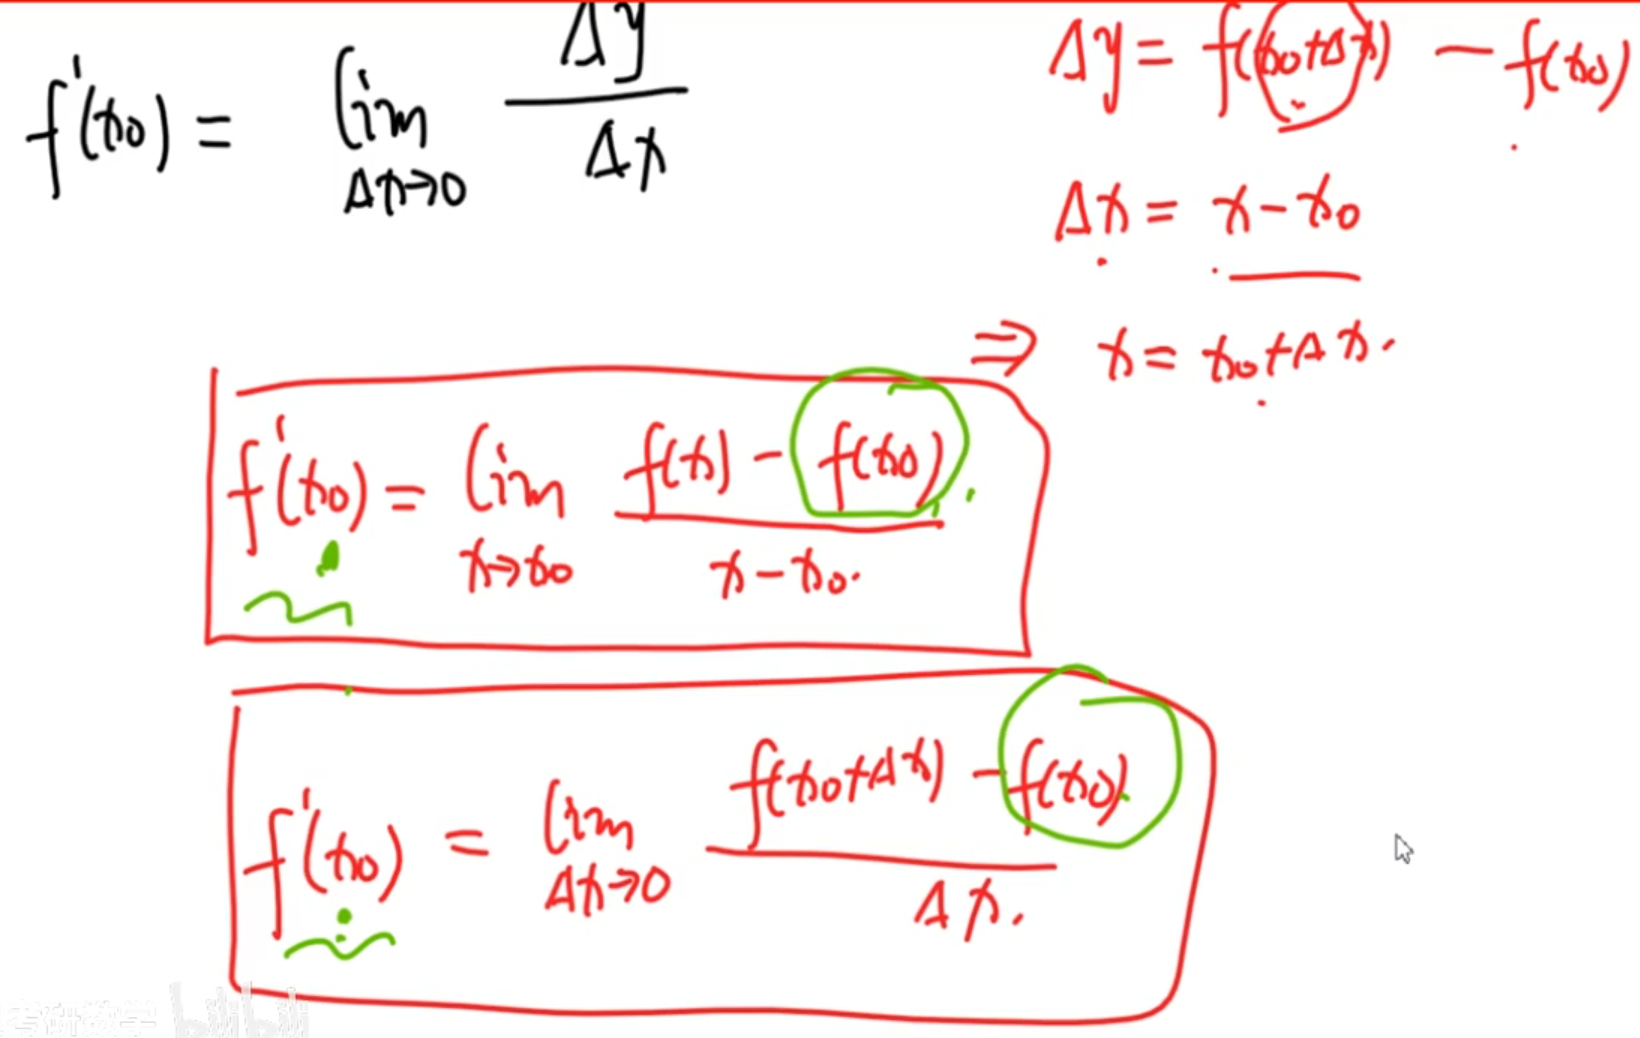 f'(x₀) = lim Δx→0 Δy/Δx
Δy = f(x₀+Δx) − f(x₀)
Δx = x − x₀
⇒ x = x₀+Δx.
f'(x₀) = lim x→x₀ (f(x) − f(x₀))/(x − x₀).
f'(x₀) = lim Δx→0 (f(x₀+Δx) − f(x₀))/Δx.
考研数学 bilibili